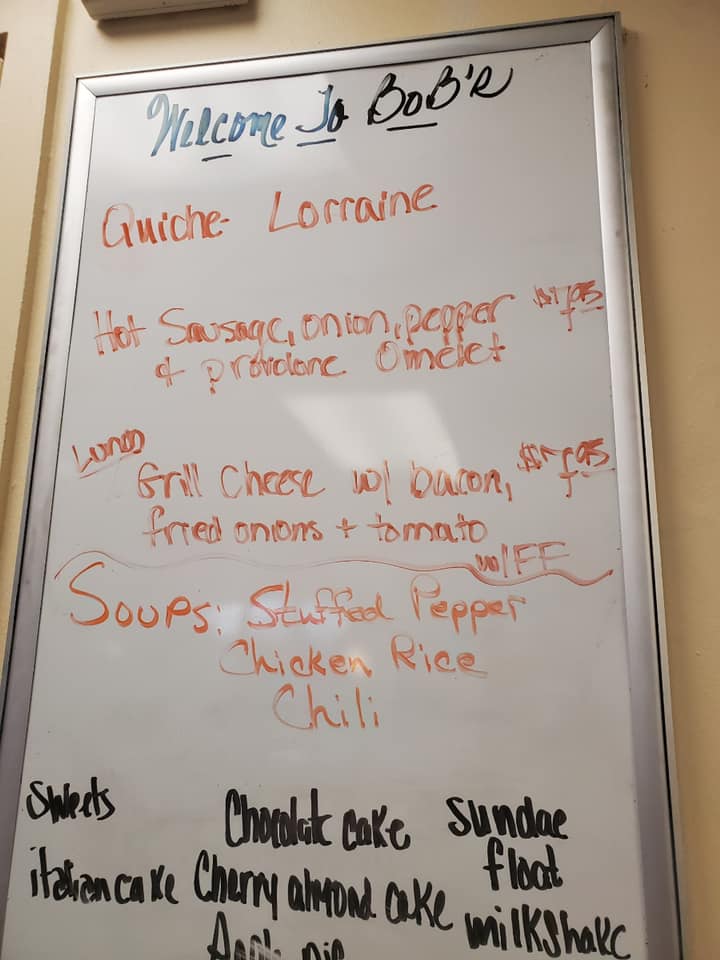 Welcome To BoB's
Quiche- Lorraine
Hot Sausage, onion, pepper
& provolone Omelet
Lunch
Grill Cheese w/ bacon,
fried onions + tomato
w/FF
Soups: Stuffed Pepper
Chicken Rice
Chili
Sweets
Chocolate cake
Sundae
float
italian cake
Cherry almond cake
milkshake
pie